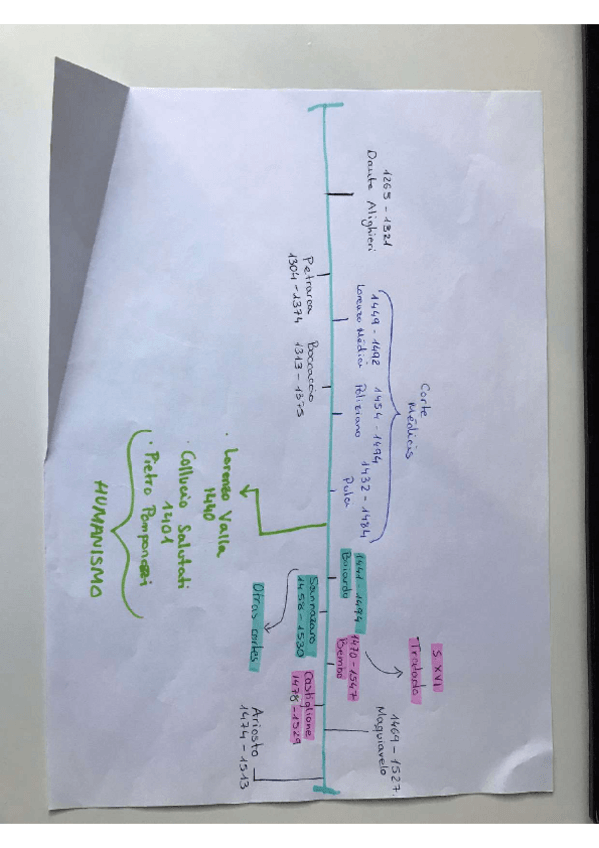 1265 - 1321
Dante Alighieri
Petrarca
1304 - 1374
1449 - 1492
Lorenzo Médici
Boccaccio
1313 - 1375
Corte
Médicis
1454 - 1494
Poliziano
1432 - 1484
Pulci
· Lorenzo Valla
1440
· Colluccio Salutati
1401
· Pietro Pomponazzi
HUMANISMO
1441 - 1494
Boiardo
Sannazaro
1458 - 1530
Otras cortes
S. XVI
Tratado
1470 - 1547
Bembo
Castiglione
1478 - 1529
1469 - 1527
Maquiavelo
Ariosto
1474 - 1513